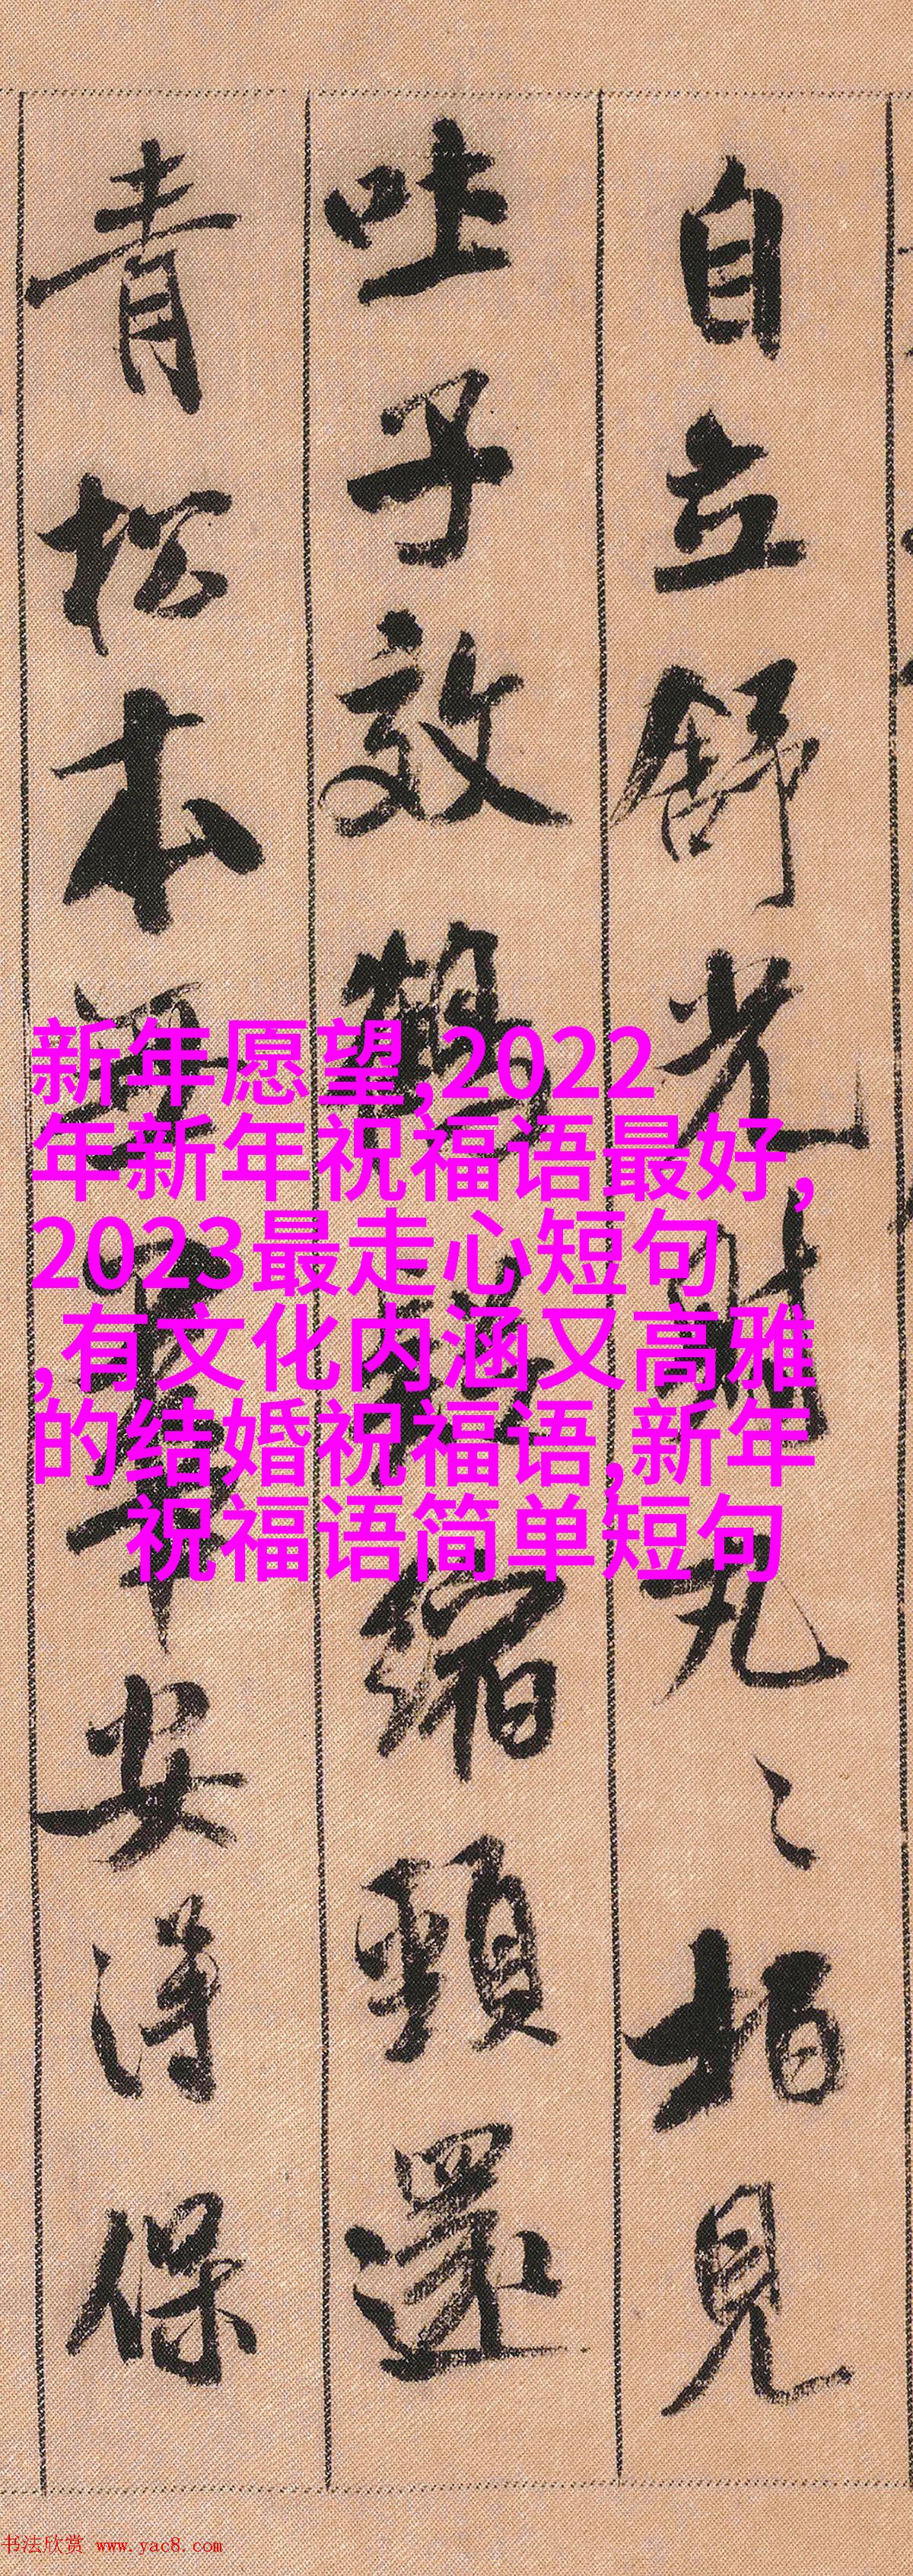 自立舒光射丸〻柏見
吐子效鶴縮頸還
青松本無華安得保
新年愿望,2022
年新年祝福语最好,
2023最走心短句
,有文化内涵又高雅
的结婚祝福语,新年
祝福语简单短句
书法欣赏 www.yac8.com